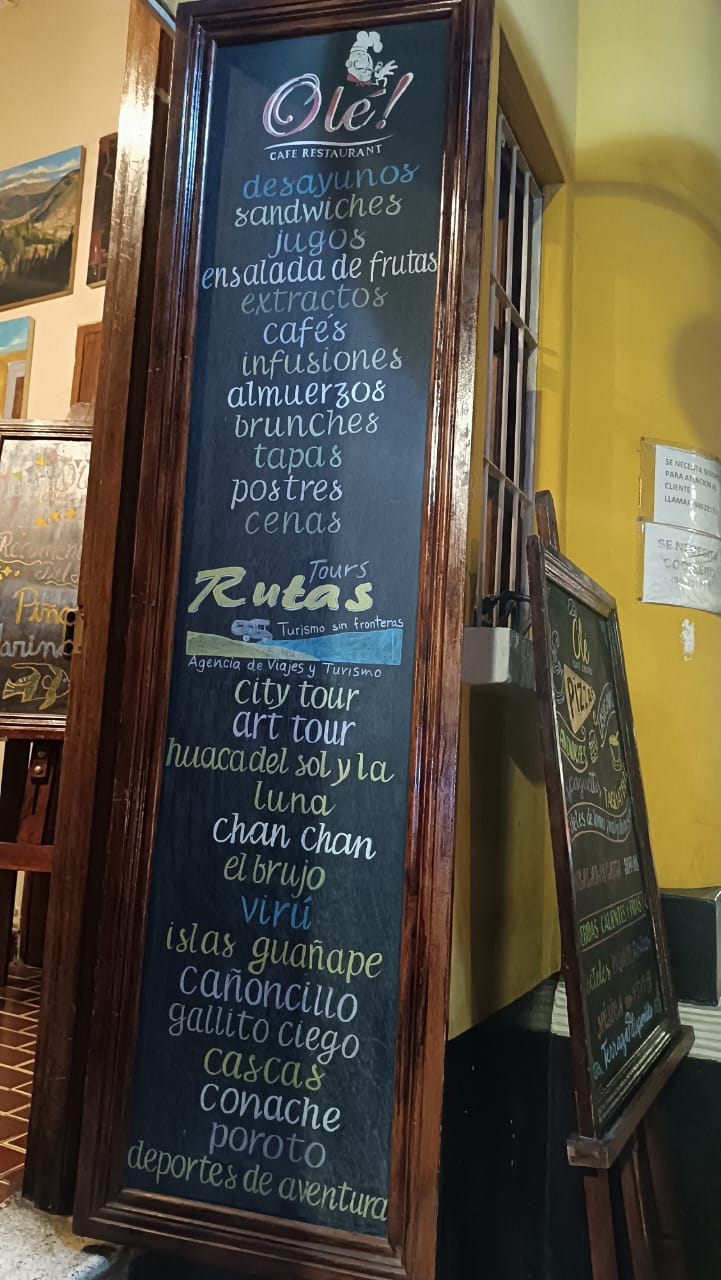 Olé!
CAFE RESTAURANT
desayunos
sandwiches
jugos
ensalada de frutas
extractos
cafés
infusiones
almuerzos
brunches
tapas
postres
cenas
Tours
Rutas
Turismo sin fronteras
Agencia de Viajes y Turismo
city tour
art tour
huaca del sol y la
luna
chan chan
el brujo
virú
islas guañape
cañoncillo
gallito ciego
cascas
conache
poroto
deportes de aventura
SE NECESITA
PARA ATENCION AL
CLIENTE
LLAMAR
SE NECESITA
Olé
PIZZAS